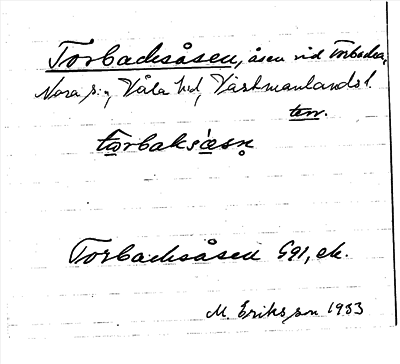 Torbacksåsen, åsen vid Torbacka,
Nora sn, Våla hd, Västmanlands l.
terr.
torbaksåsn
Torbacksåsen G91, ek.
M. Eriksson 1933